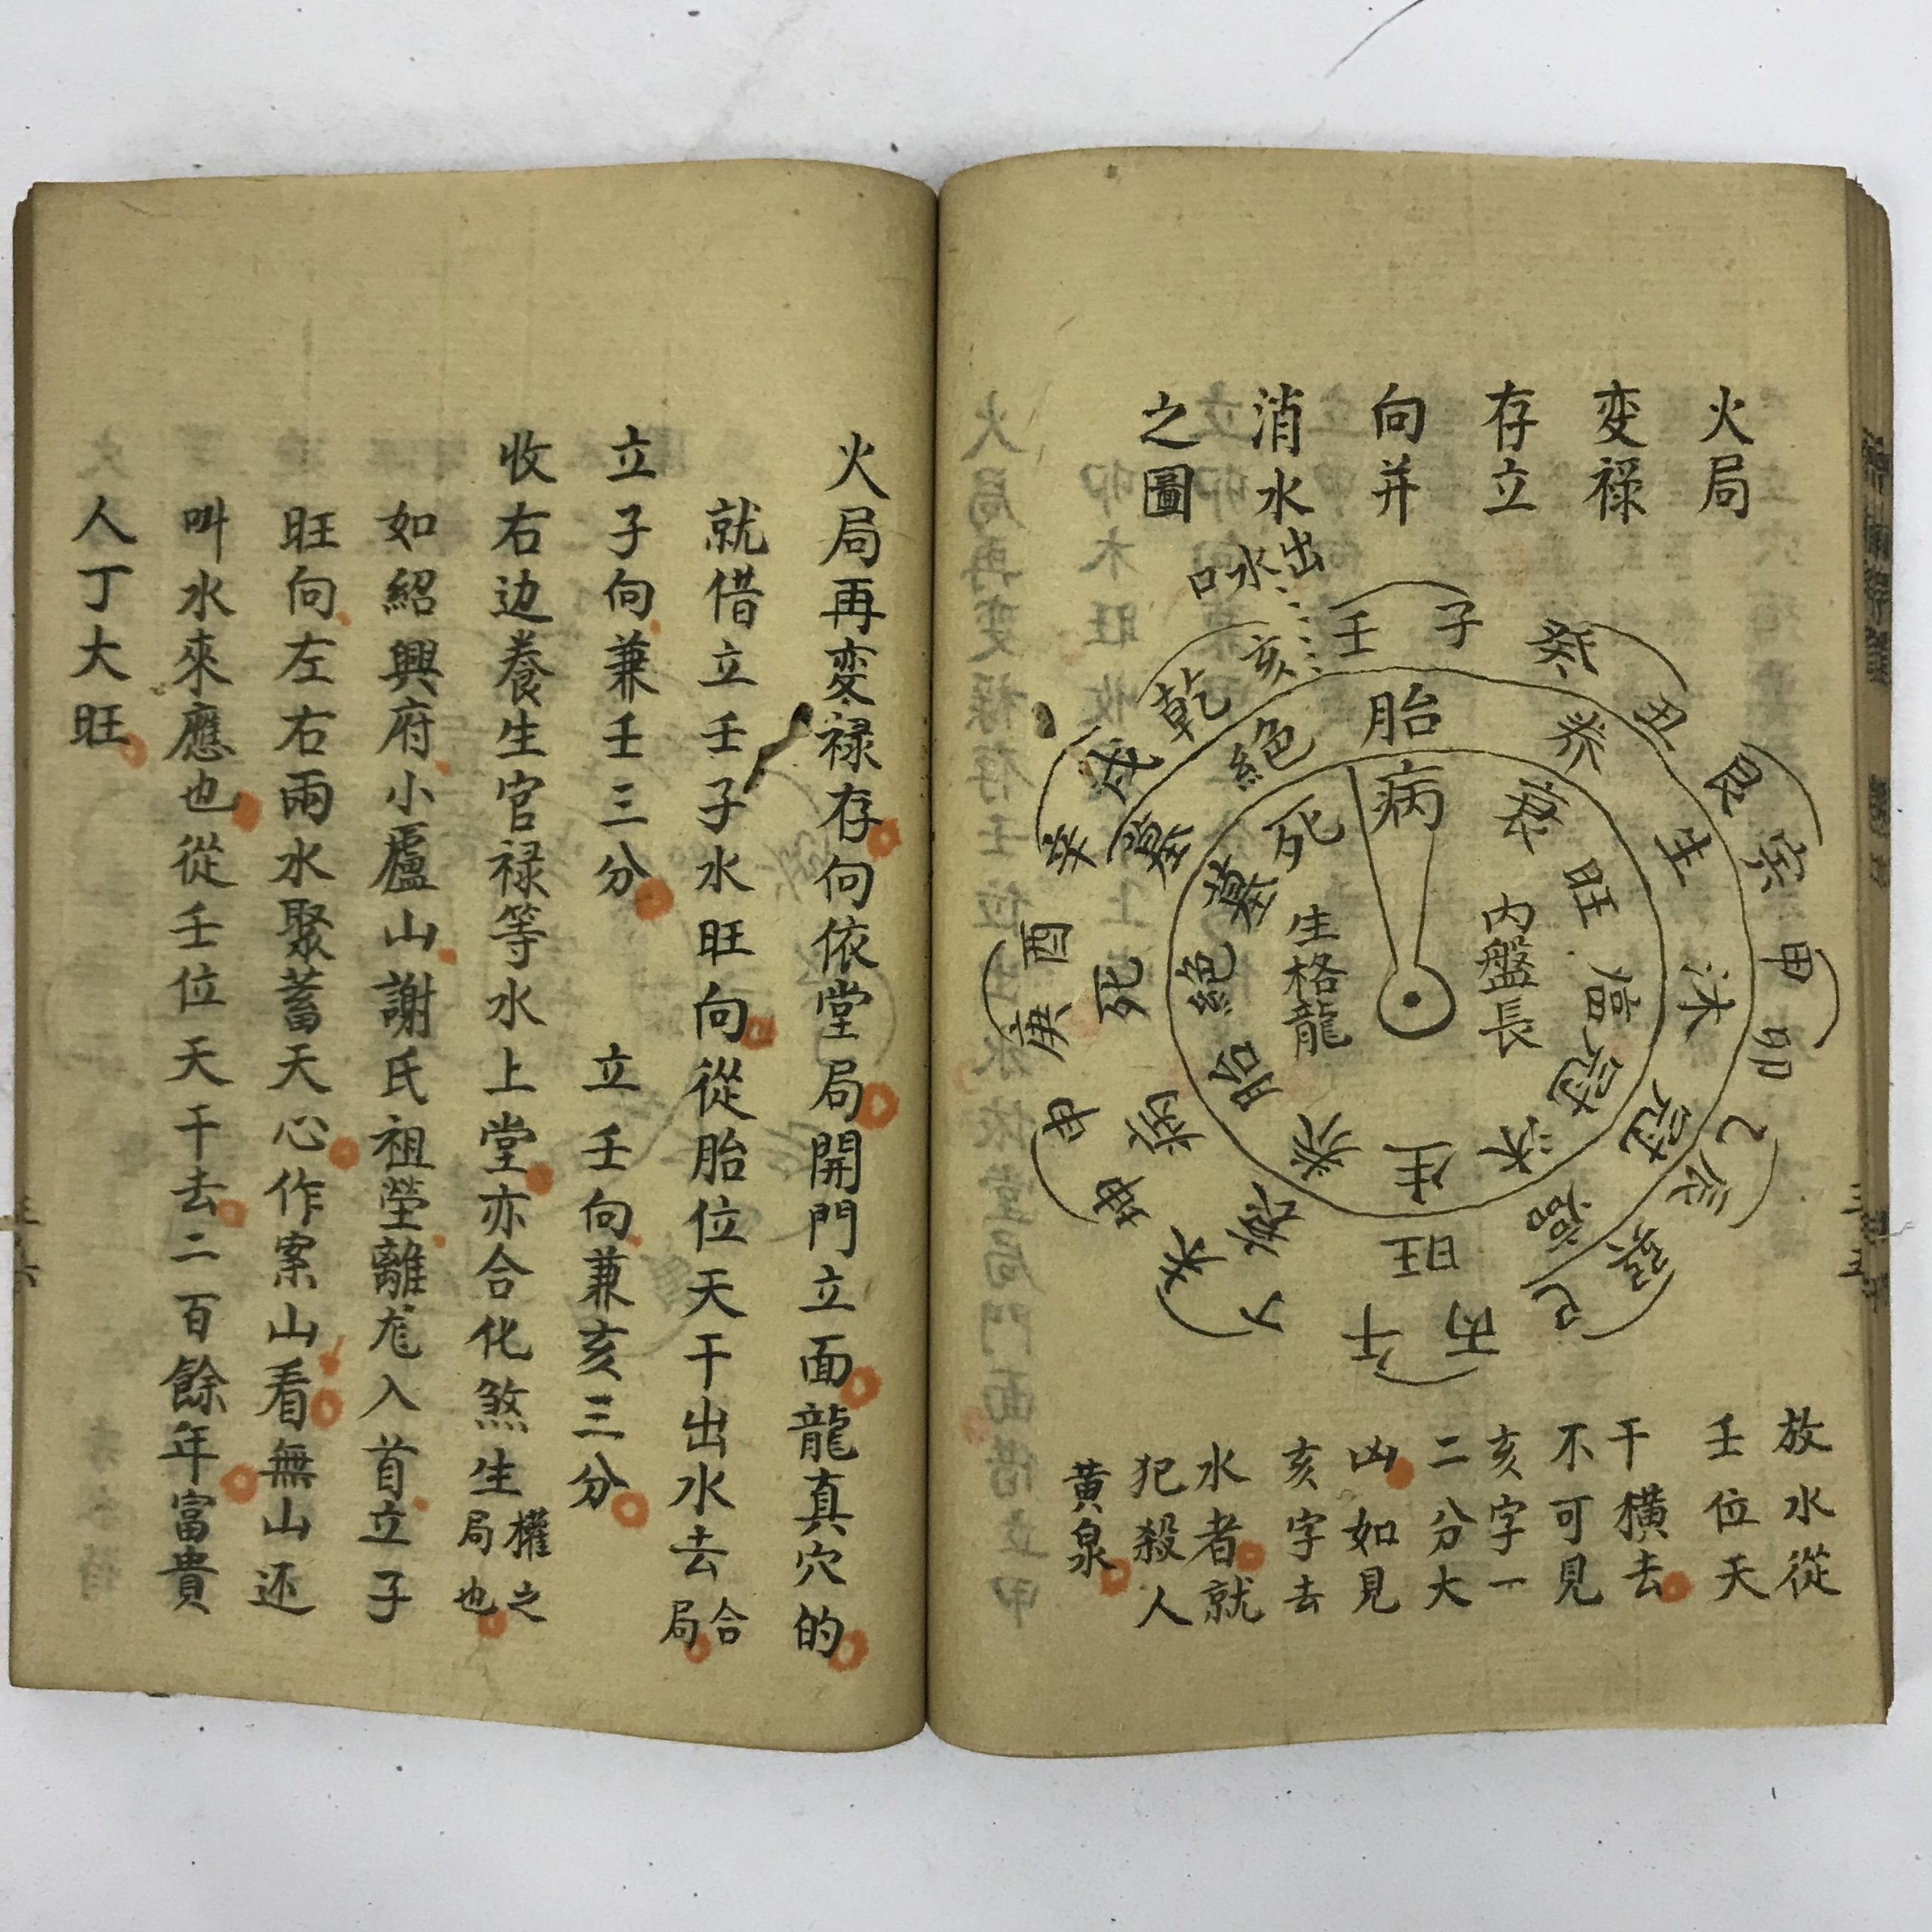 火局
変禄
存立
向并
消水
之圖
出水口
壬
子
癸
丑
艮
寅
甲
卯
乙
辰
巽
巳
丙
午
丁
未
坤
申
庚
酉
辛
戌
乾
亥
胎
养
生
沐
冠
臨
旺
衰
病
死
墓
絕
病
衰
旺
臨
冠
沐
生
养
胎
絕
墓
死
内盤長
生格龍
放水從
壬位天
干横去
不可見
亥字一
二分大
凶如見
亥字去
水者就
犯殺人
黄泉
火局再変禄存向依堂局開門立面龍真穴的
就借立壬子水旺向從胎位天干出水去合局
立子向兼壬三分 立壬向兼亥三分
收右边養生官禄等水上堂亦合化煞生權之局也
如紹興府小廬山謝氏祖塋離龙入首立子
旺向左右兩水聚蓄天心作案山看無山还
叫水來應也從壬位天干去二百餘年富貴
人丁大旺